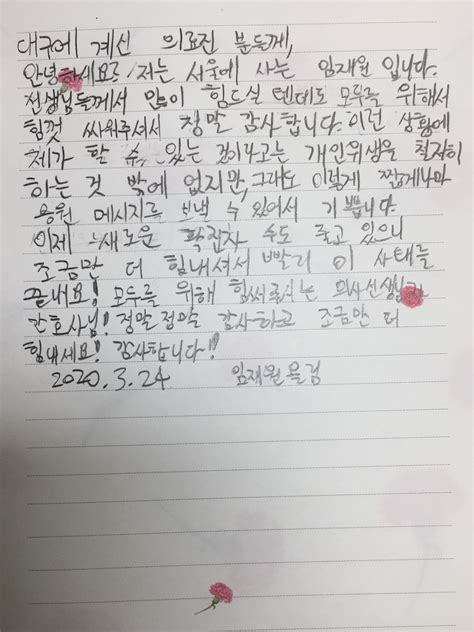 대구에 계신 의료진 분들께,
안녕하세요? 저는 서울에 사는 임재원 입니다.
선생님들께서 많이 힘드실 텐데도 모두를 위해서
힘껏 싸워주셔서 정말 감사합니다. 이런 상황에
제가 할 수 있는 것이라고는 개인위생을 철저히
하는 것 밖에 없지만, 그래도 이렇게 짧게나마
응원 메시지를 보낼 수 있어서 기쁩니다.
이제 새로운 확진자 수도 줄고 있으니
조금만 더 힘내셔서 빨리 이 사태를
끝내요! 모두를 위해 힘써주시는 의사선생님과
간호사님! 정말정말 감사하고 조금만 더
힘내세요! 감사합니다!!
2020.3.24 임재원올림